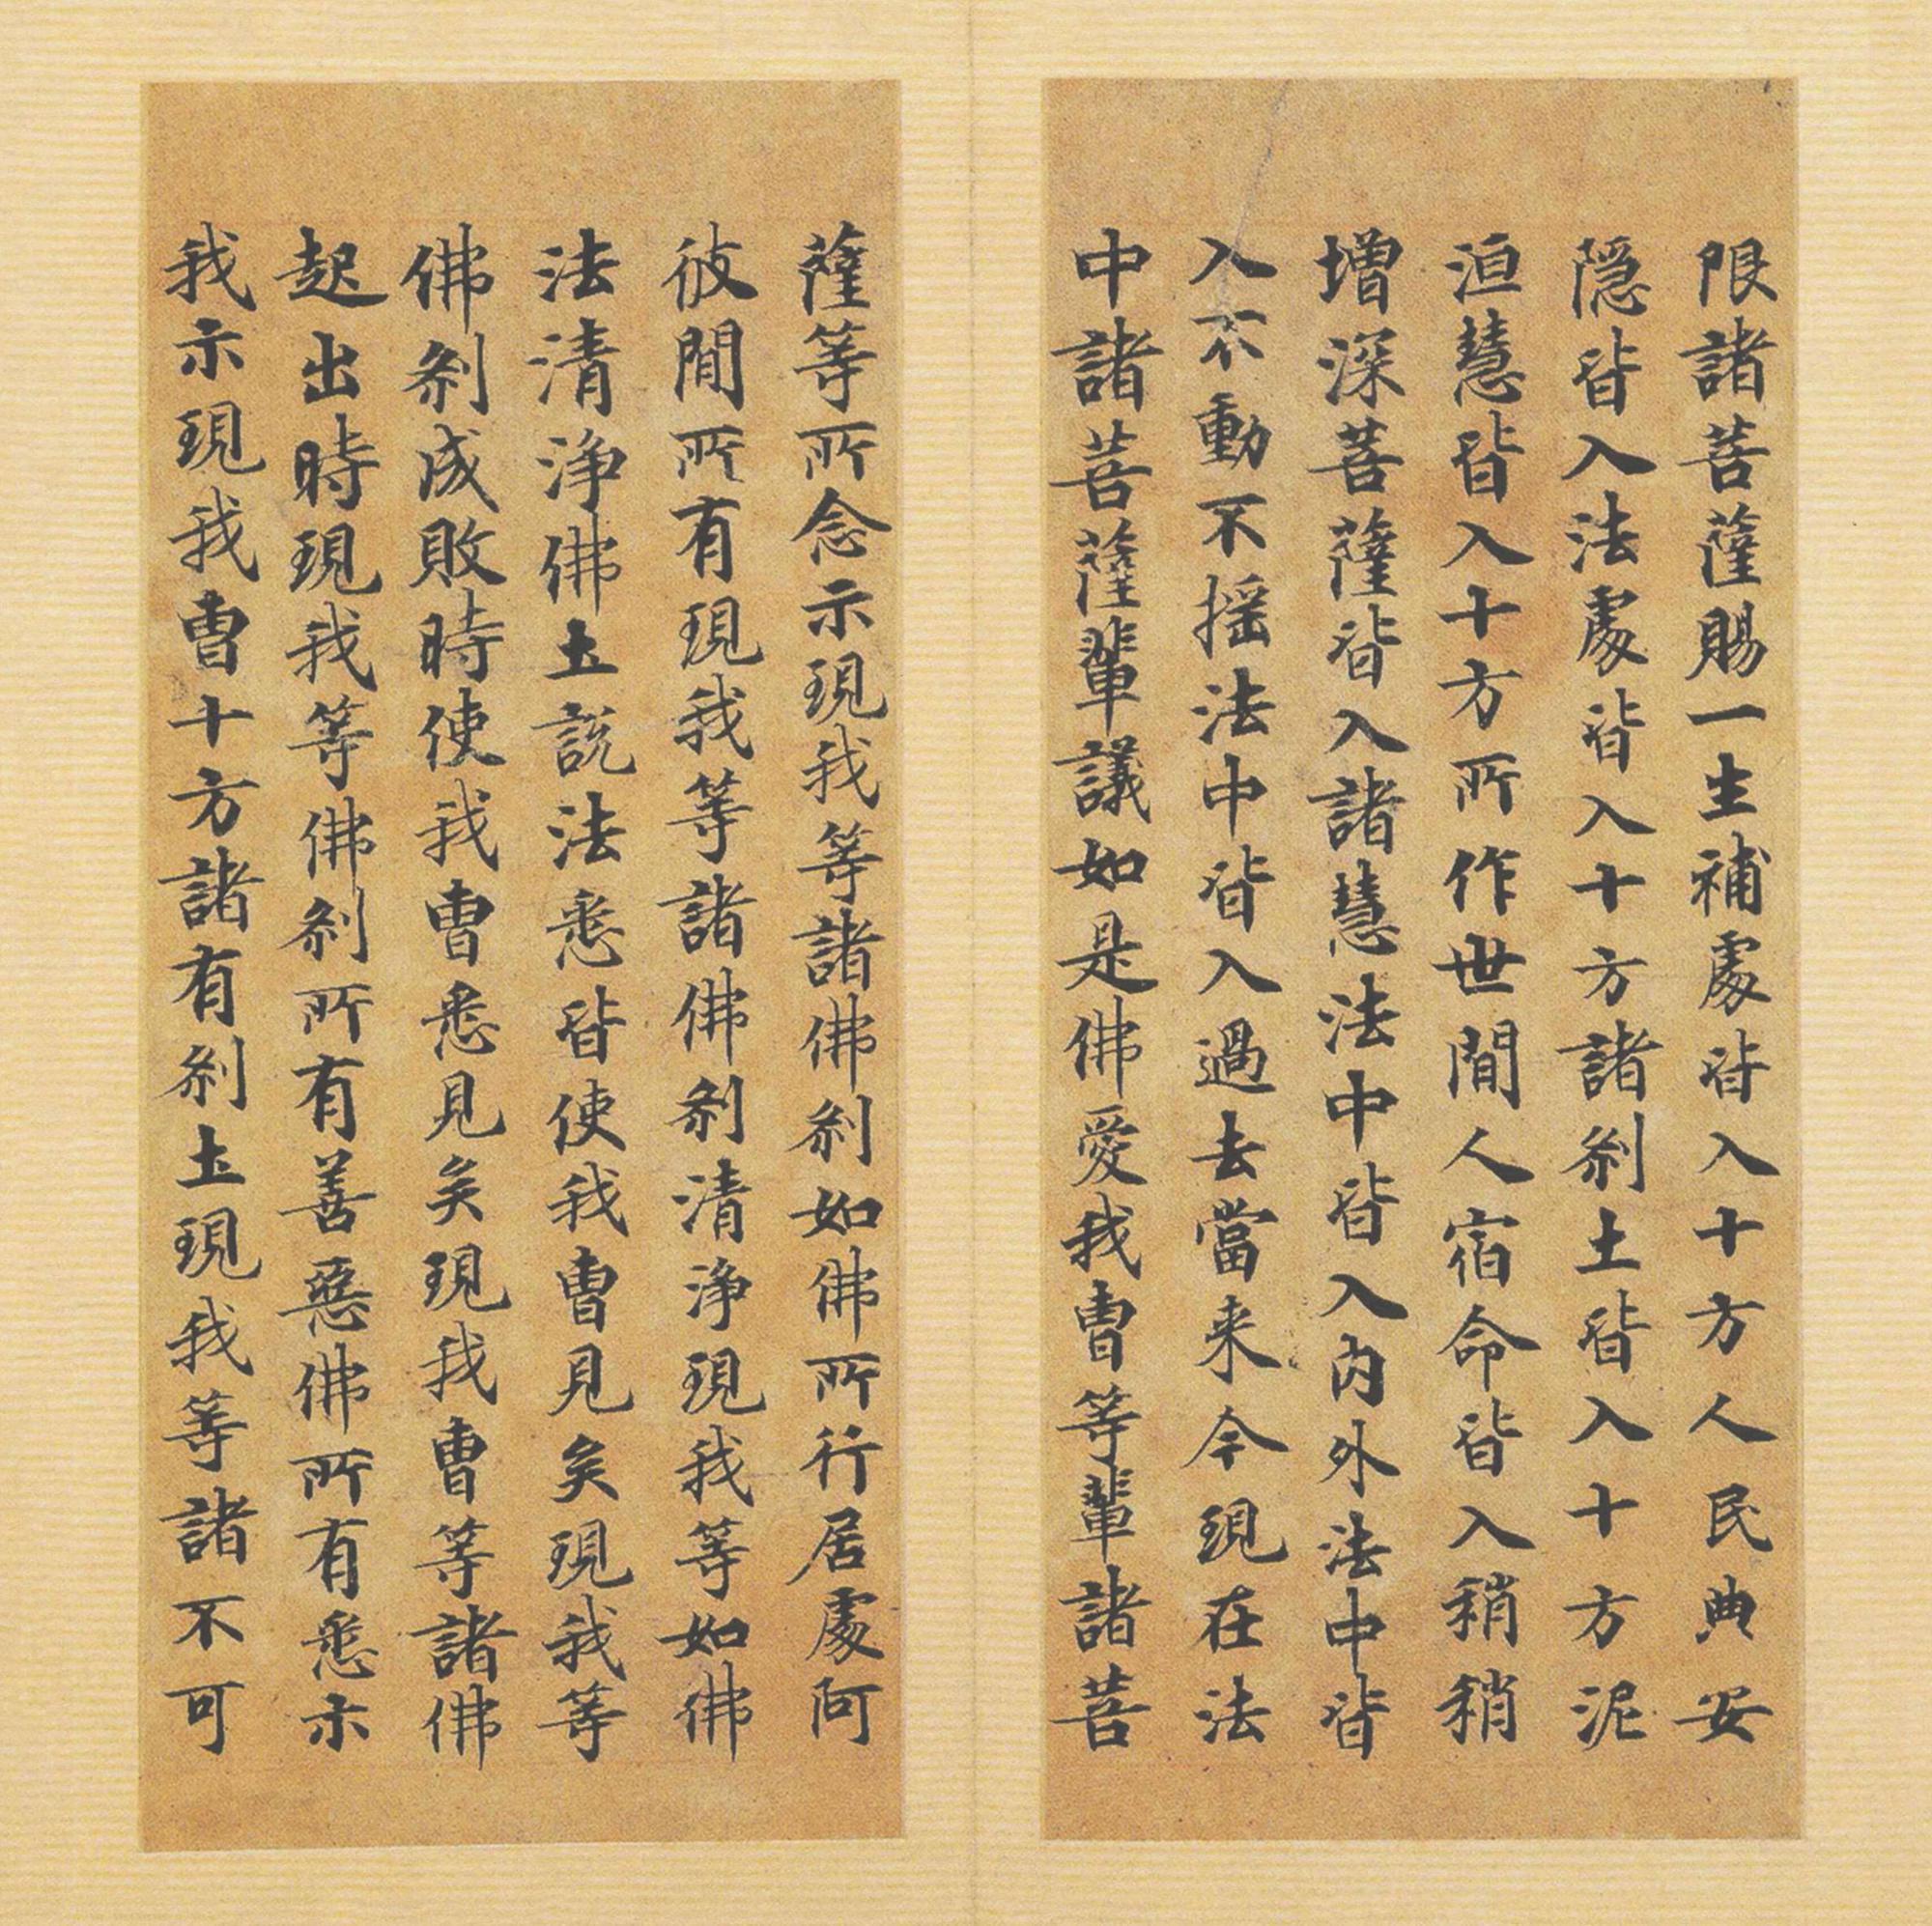 限諸菩薩賜一生補處皆入十方人民典安
隱皆入法處皆入十方諸刹土皆入十方泥
洹慧皆入十方所作世間人宿命皆入稍稍
增深菩薩皆入諸慧法中皆入內外法中皆
入不動不揺法中皆入過去當来今現在法
中諸菩薩輩議如是佛愛我曹等輩諸菩
薩等所念示現我等諸佛刹如佛所行居處阿
彼間所有現我等諸佛刹清浄現我等如佛
法清浄佛土說法悉皆使我曹見矣現我等
佛刹成敗時使我曹悉見矣現我曹等諸佛
起出時現我等佛刹所有善惡佛所有悉示
我示現我曹十方諸有刹土現我等諸不可